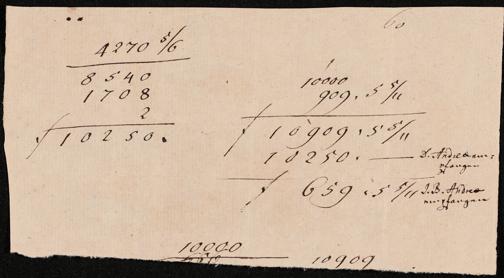 60
4270 5/6
8540
1708
2
ƒ 10250.
10000
909. 5 5/11
ƒ 10909. 5 5/11
10250. — D. Andreae em:
pfangen
ƒ 659. 5 5/11 J. B. Andreae
empfangen
10000
10909